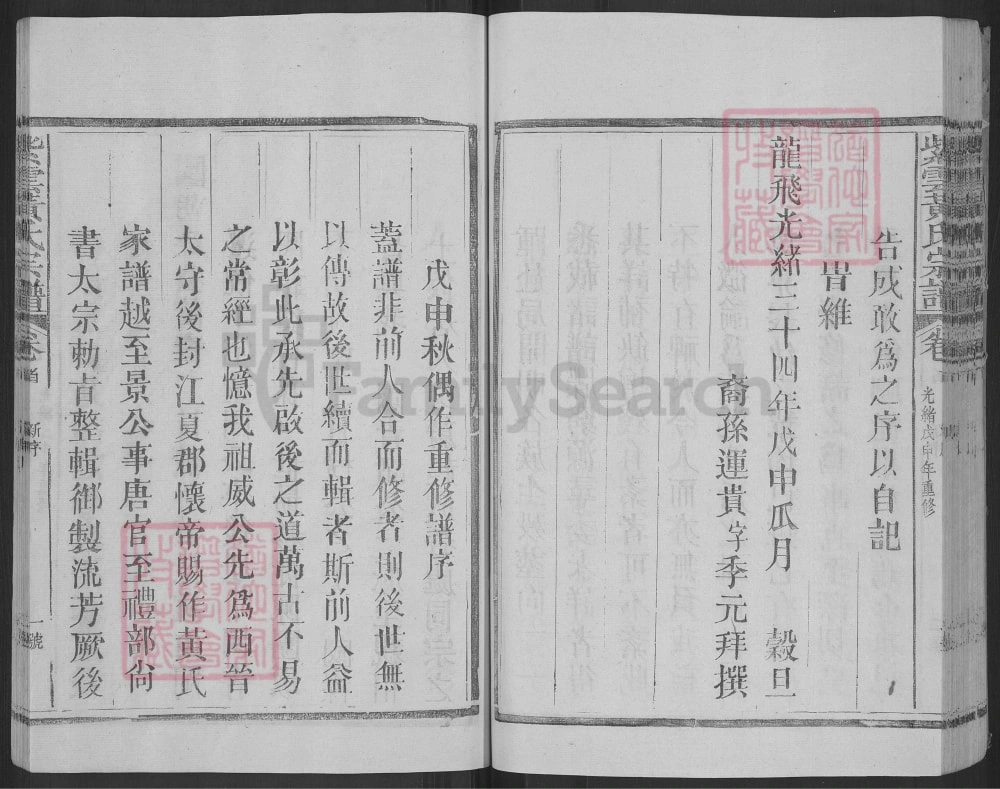 紫雲黃氏宗譜
卷
光緒戊申年重修
告成敢爲之序以自記
旹維
龍飛光緒三十四年戊申瓜月　穀旦
裔孫運貴字季元拜撰
戊申秋偶作重修譜序
蓋譜非前人合而修者則後世無
以傳故後世續而輯者斯前人益
以彰此承先啟後之道萬古不易
之常經也憶我祖威公先爲西晉
太守後封江夏郡懷帝賜作黃氏
家譜越至景公事唐官至禮部尙
書太宗勅旨整輯御製流芳厥後
紫雲黃氏宗譜
卷首
新序
一號
FamilySearch